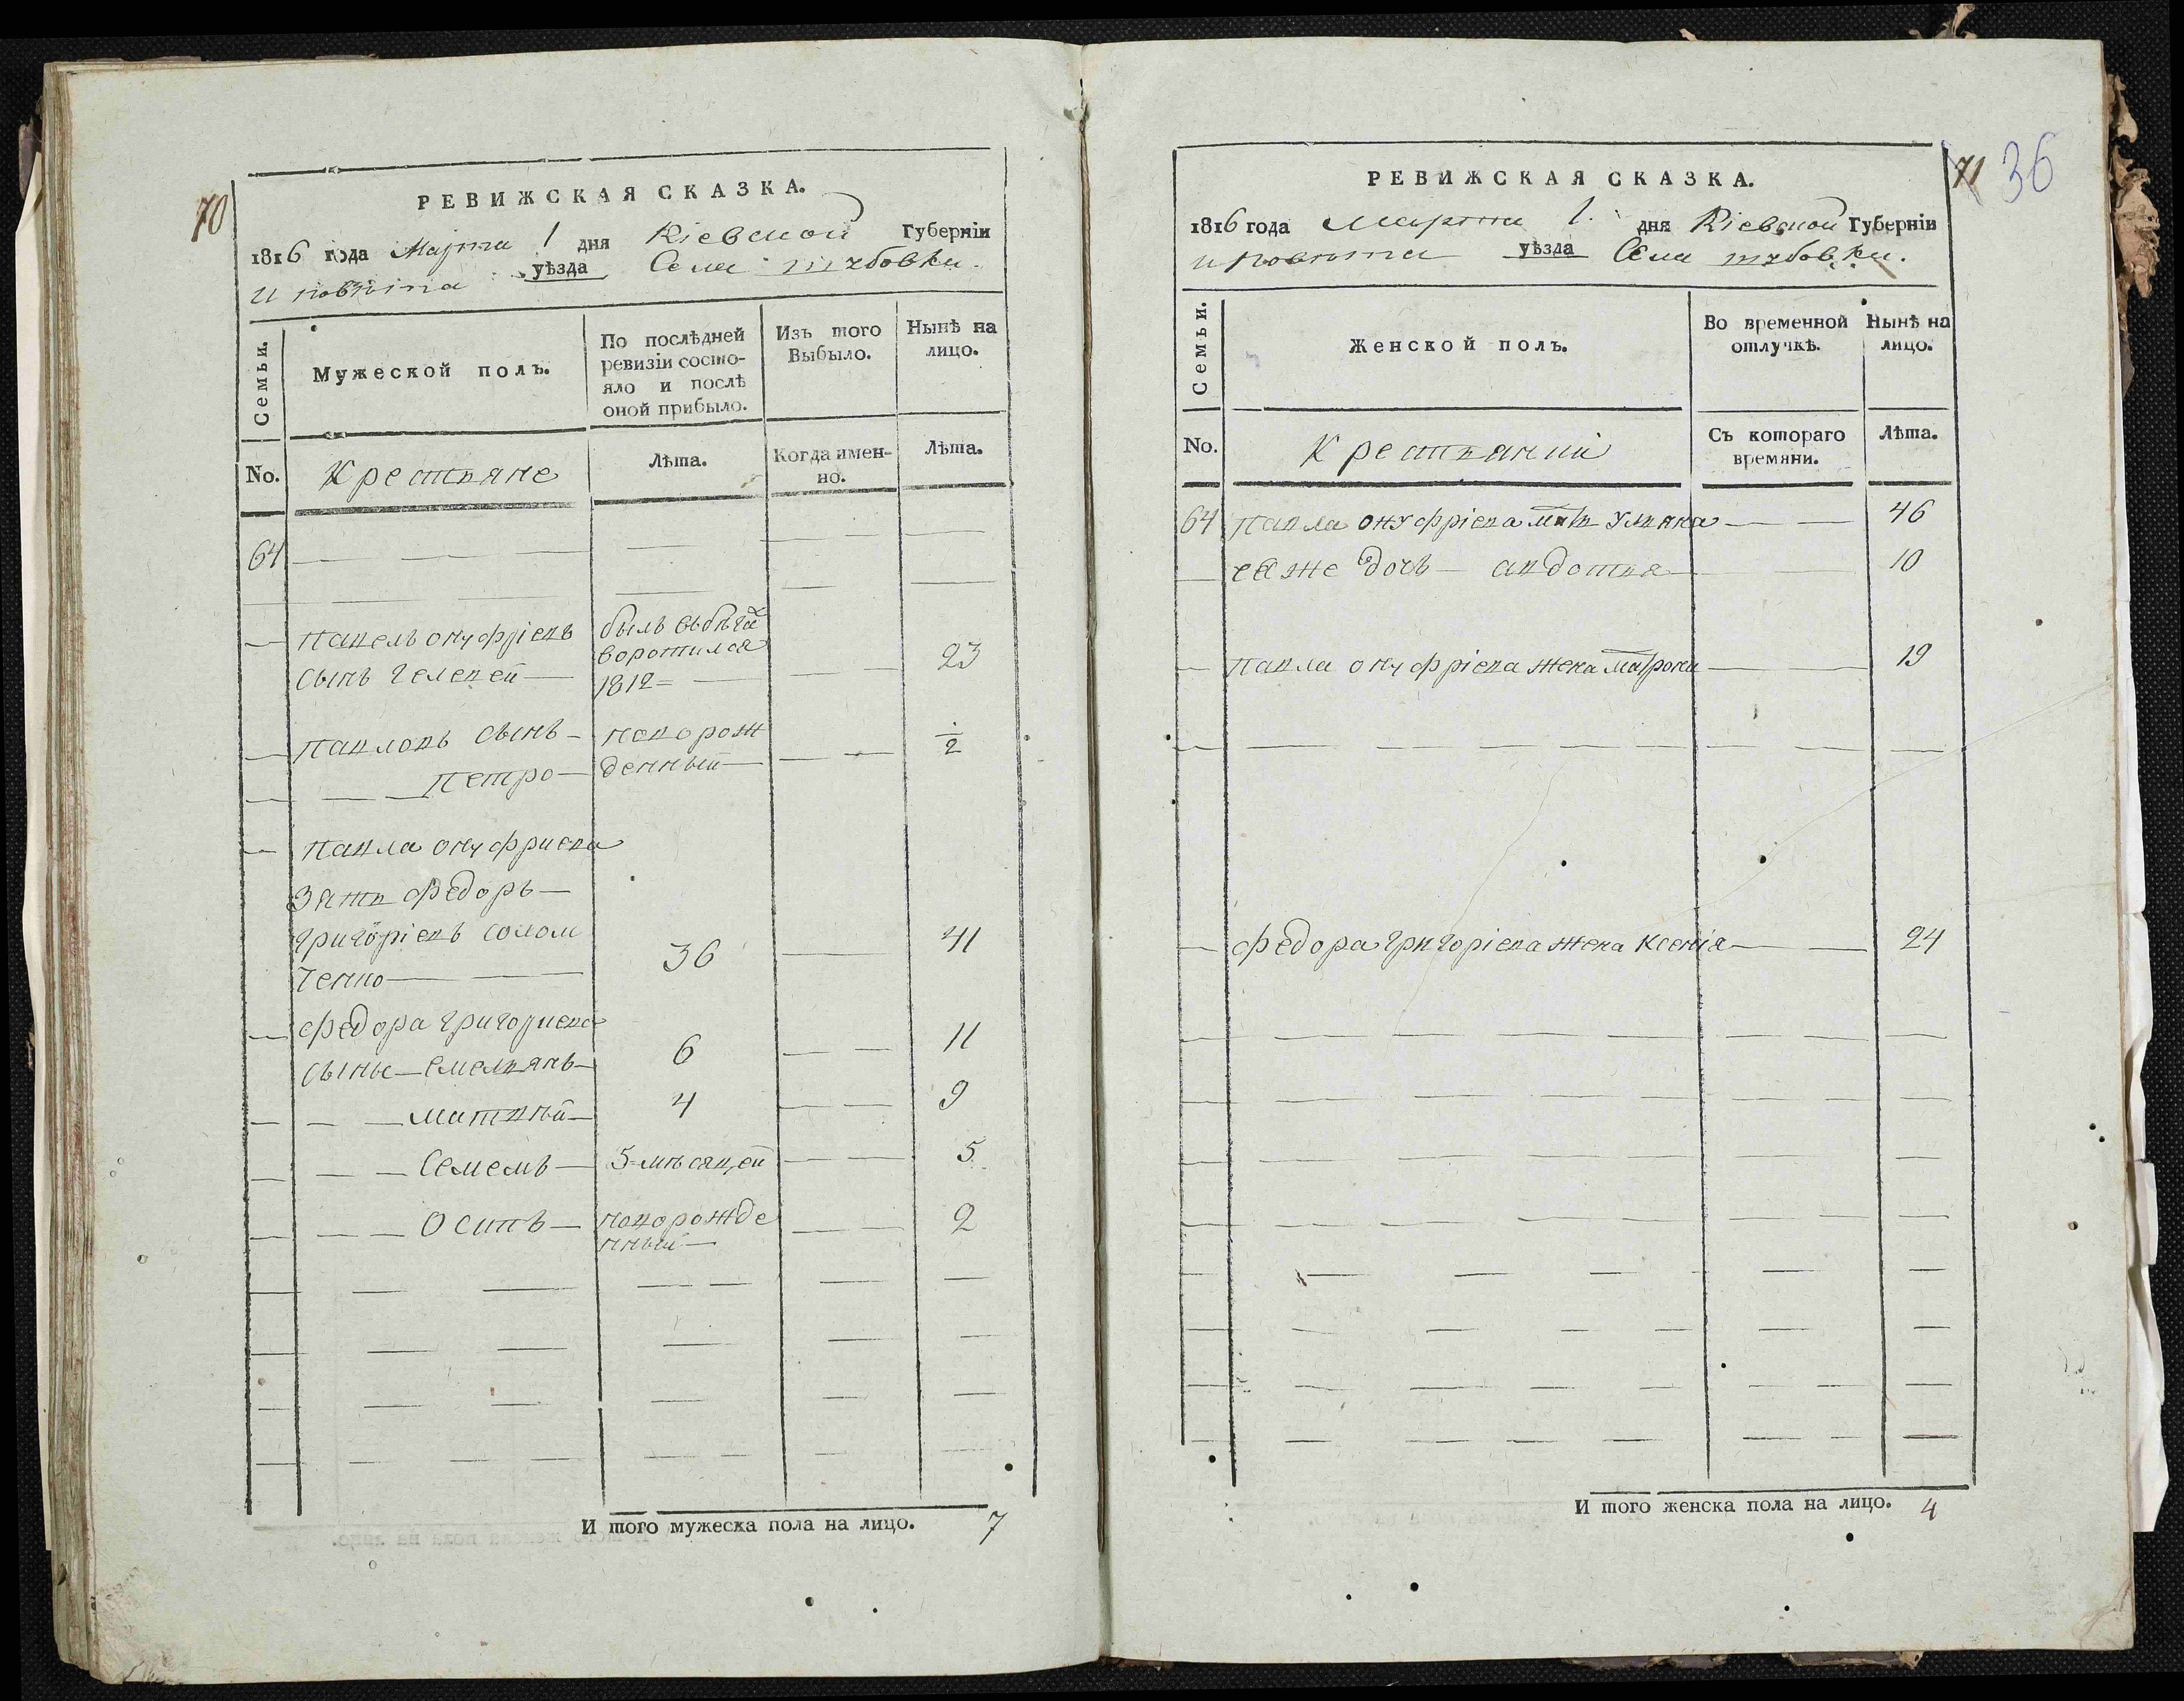 70
РЕВИЖСКАЯ СКАЗКА.
1816 года Марта 1 дня Кіевской Губерніи
и повѣта уѣзда Села шубовки.
Семьи.
Мужеской полъ.
По послѣдней ревизіи состояло и послѣ оной прибыло.
Изъ того Выбыло.
Нынѣ на лицо.
No.
Крестьяне
Лѣта.
Когда именно.
Лѣта.
64
Павелъ онуфріевъ
былъ вбѣга
воротился
сынъ
1812
23
Павловъ сынъ
новорож
1/2
Петро
денный
Павла онуфриева
зять федоръ
григоріевъ солом
36
41
ченко
федора григориева
сыны Емельянъ
6
11
матвѣй
4
9
Семенъ
5 мѣсяцей
5
Осипъ
новорожде
2
нный
И того мужеска пола на лицо. 7
71
36
РЕВИЖСКАЯ СКАЗКА.
1816 года Марта 1. дня Кіевской Губерніи
и повѣта уѣзда Села шубовки.
Семьи.
Женской полъ.
Во временной отлучкѣ.
Нынѣ на лицо.
No.
Крестьяни
Съ котораго времяни.
Лѣта.
64 Павла онуфріева мать Ульяна 46
еяже дочь авдотья 10
Павла онуфріева жена матрона 19
федора григоріева жена ксенія 24
И того женска пола на лицо. 4